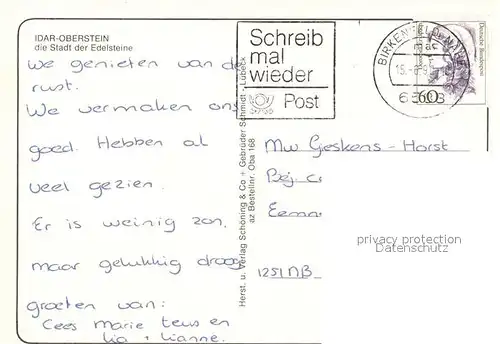 IDAR-OBERSTEIN
die Stadt der Edelsteine
We genieten van de
rust.
We vermaken ons
goed. Hebben al
veel gezien.
Er is weinig zon,
maar gelukkig droog
groeten van:
Cees Marie Teus en
Lia + Lianne.
Herst. u. Verlag Schöning & Co + Gebrüder Schmidt, Lübeck
az Bestellnr. Oba 168
Schreib
mal
wieder
Post
BIRKENFELD
15.-8.
Deutsche Bundespost
60
Mw Geskens-Horst
Bej.
Eemn
1251 NB
privacy protection
Datenschutz